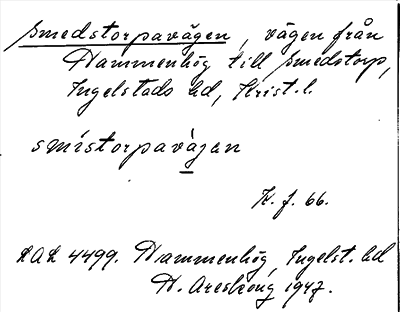 Smedstorpavägen, vägen från
Hammenhög till Smedstorp,
Ingelstads hd, Krist. l.
smístorpavä̀gan
K. f. 66.
LAL 4499. Hammenhög, Ingelst. hd
N. Areskoug, 1947.